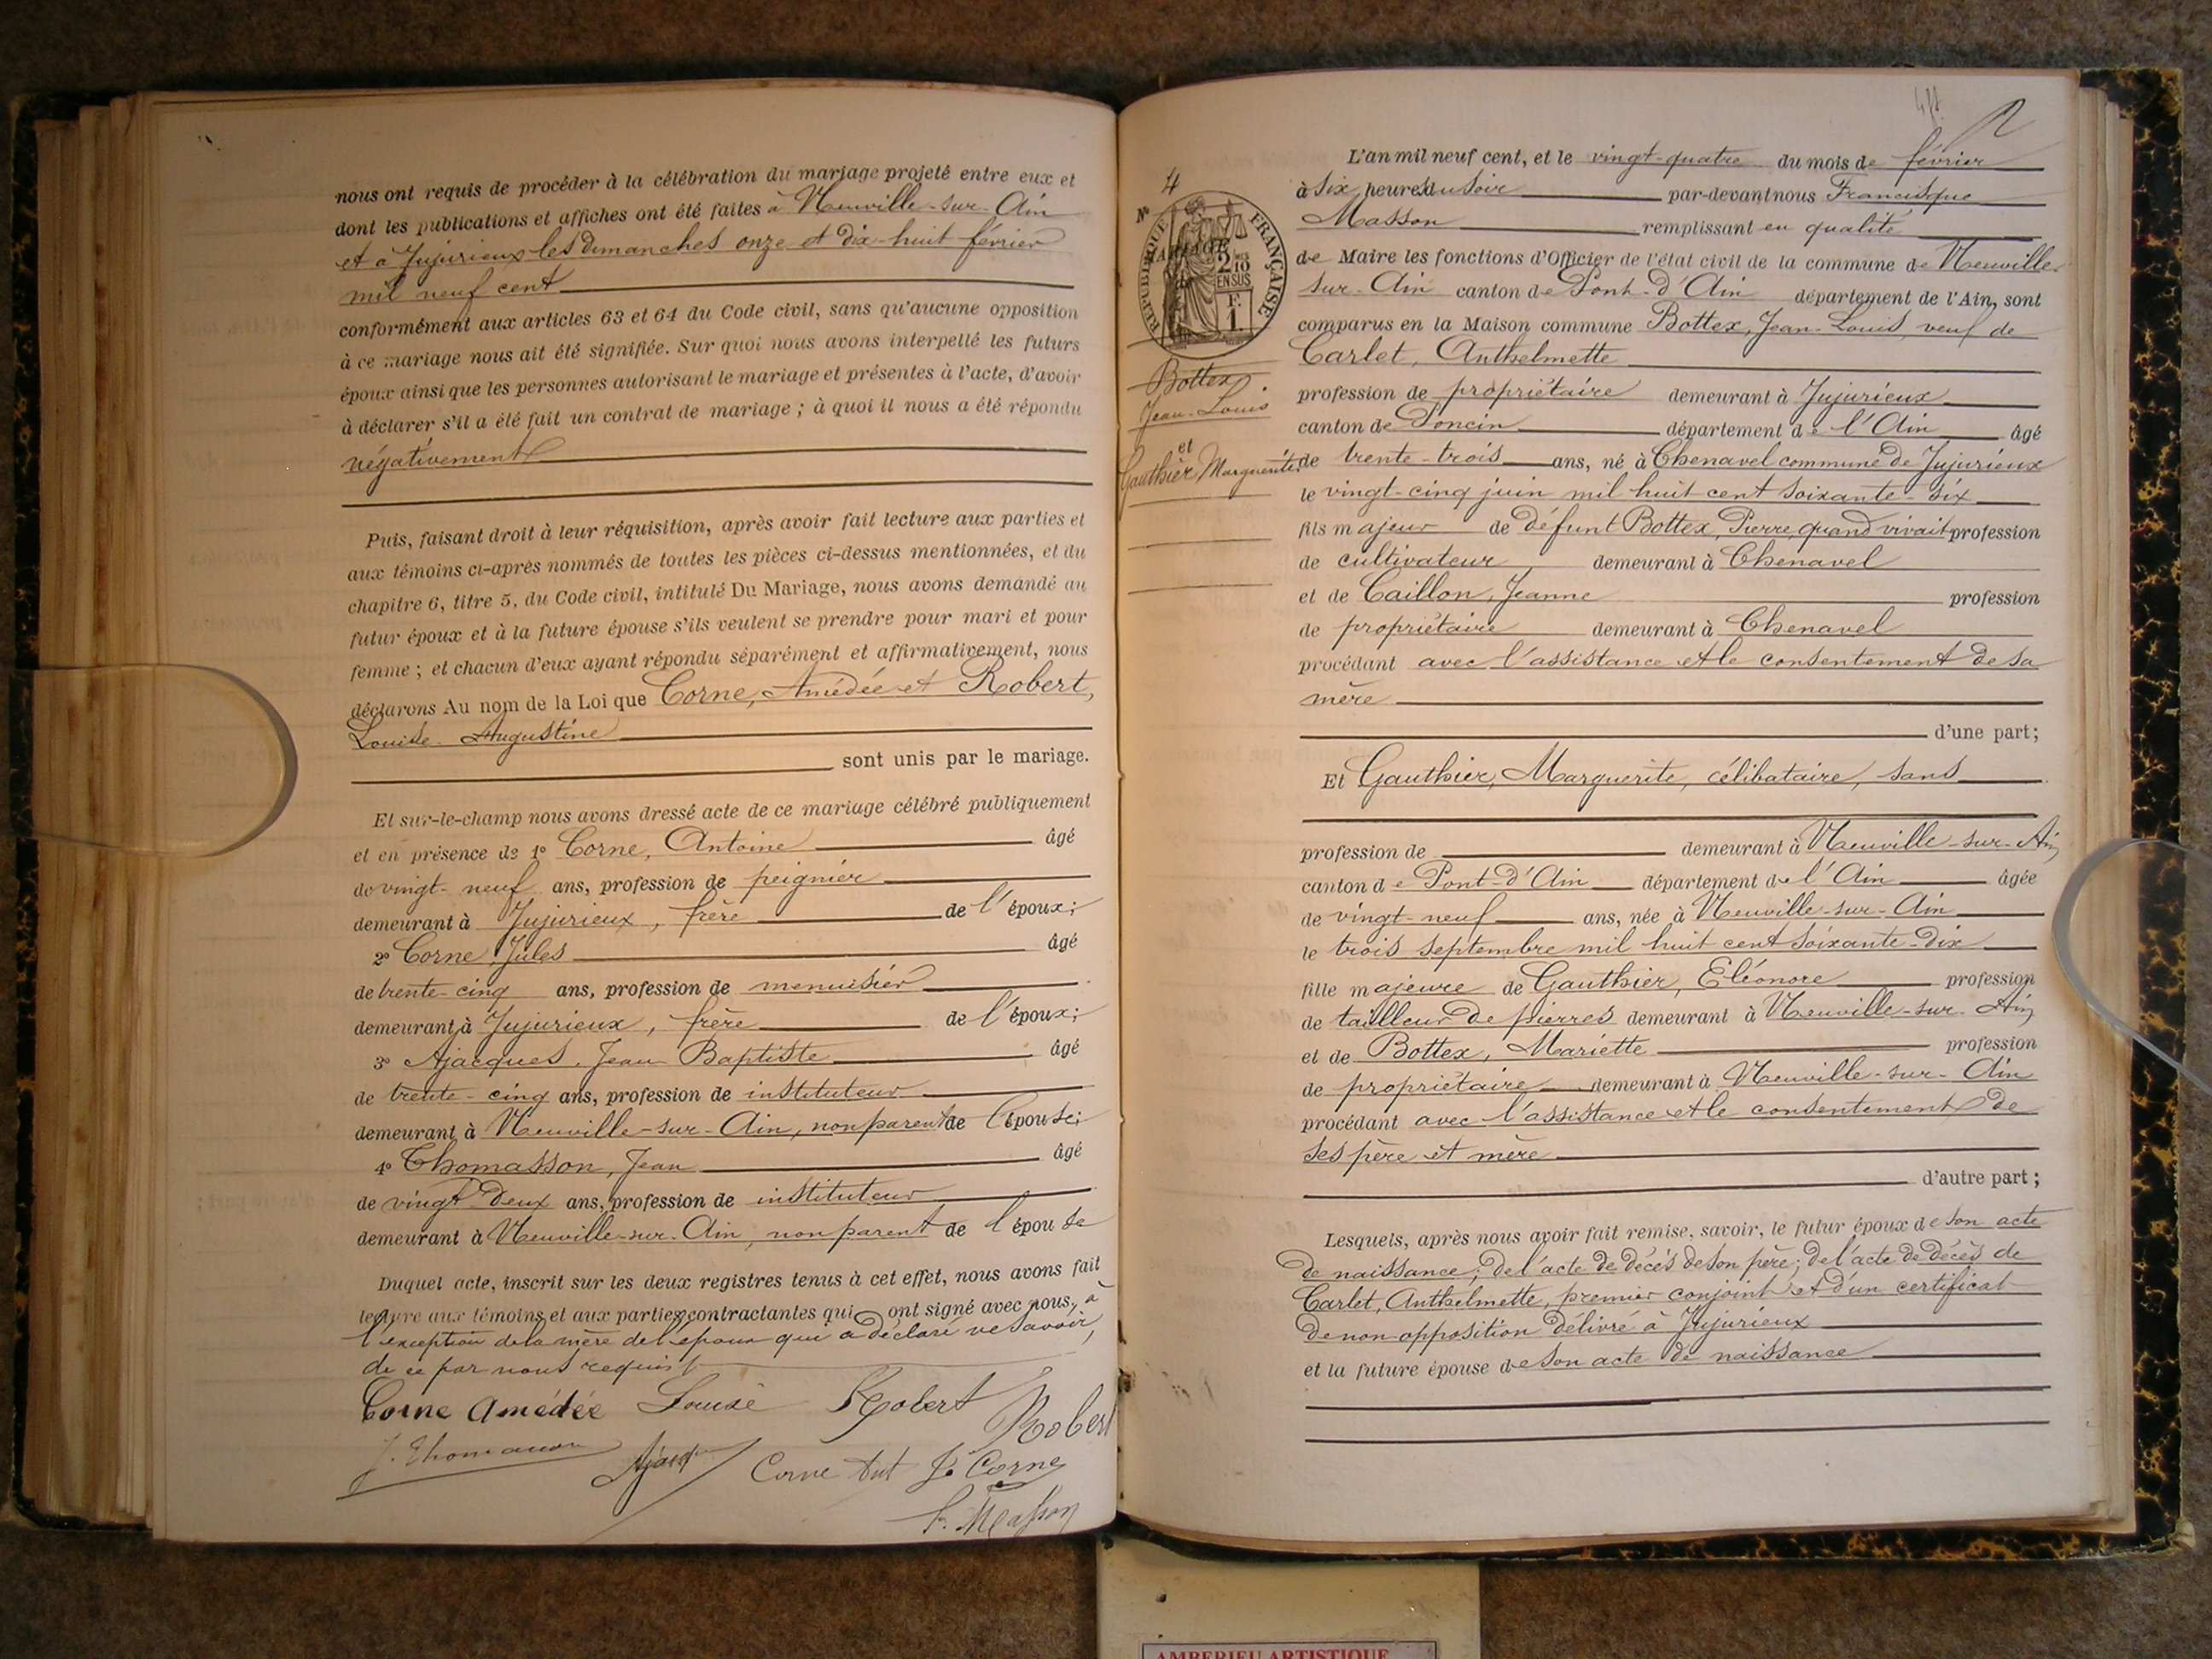 nous ont requis de procéder à la célébration du mariage projeté entre eux et
dont les publications et affiches ont été faites à Neuville-sur-Ain
et à Jujurieux les dimanches onze et dix-huit février
mil neuf cent
conformément aux articles 63 et 64 du Code civil, sans qu'aucune opposition
à ce mariage nous ait été signifiée. Sur quoi nous avons interpellé les futurs
époux ainsi que les personnes autorisant le mariage et présentes à l'acte, d'avoir
à déclarer s'il a été fait un contrat de mariage ; à quoi il nous a été répondu
négativement
Puis, faisant droit à leur réquisition, après avoir fait lecture aux parties et
aux témoins ci-après nommés de toutes les pièces ci-dessus mentionnées, et du
chapitre 6, titre 5, du Code civil, intitulé Du Mariage, nous avons demandé au
futur époux et à la future épouse s'ils veulent se prendre pour mari et pour
femme ; et chacun d'eux ayant répondu séparément et affirmativement, nous
déclarons Au nom de la Loi que Corne, Amédée et Robert,
Louise-Augustine
sont unis par le mariage.
Et sur-le-champ nous avons dressé acte de ce mariage célébré publiquement
et en présence de 1º Corne, Antoine âgé
de vingt-neuf ans, profession de peignier
demeurant à Jujurieux, frère de l'époux;
2º Corne, Jules âgé
de trente-cinq ans, profession de menuisier
demeurant à Jujurieux, frère de l'époux;
3º Ajacques, Jean Baptiste âgé
de trente-cinq ans, profession de instituteur
demeurant à Neuville-sur-Ain, non parent de l'épouse;
4º Thomasson, Jean âgé
de vingt deux ans, profession de instituteur
demeurant à Neuville-sur-Ain, non parent de l'épouse
Duquel acte, inscrit sur les deux registres tenus à cet effet, nous avons fait
lecture aux témoins et aux parties contractantes qui ont signé avec nous, à
l'exception de la mère de l'époux qui a déclaré ne savoir,
de ce par nous requis
Corne Amédée Louise Robert Robert
J. Thomasson Ajacq Corne Ant J. Corne
F. Masson
2
L'an mil neuf cent, et le vingt-quatre du mois de février
à six heures du soir par-devant nous Francisque
Masson remplissant en qualité
de Maire les fonctions d'Officier de l'état civil de la commune de Neuville-
sur-Ain canton de Pont-d'Ain département de l'Ain, sont
comparus en la Maison commune Bottex, Jean-Louis, veuf de
Carlet, Anthelmette
profession de propriétaire demeurant à Jujurieux
canton de Poncin département de l'Ain âgé
de trente-trois ans, né à Chenavel commune de Jujurieux
le vingt-cinq juin mil huit cent soixante-six
fils majeur de défunt Bottex, Pierre, quand vivait profession
de cultivateur demeurant à Chenavel
et de Caillon, Jeanne profession
de propriétaire demeurant à Chenavel
procédant avec l'assistance et le consentement de sa
mère
d'une part;
Et Gauthier, Marguerite, célibataire, sans
profession de demeurant à Neuville-sur-Ain
canton de Pont-d'Ain département de l'Ain âgée
de vingt-neuf ans, née à Neuville-sur-Ain
le trois septembre mil huit cent soixante-dix
fille majeure de Gauthier, Eléonore profession
de tailleur de pierres demeurant à Neuville-sur-Ain
et de Bottex, Mariette profession
de propriétaire demeurant à Neuville-sur-Ain
procédant avec l'assistance et le consentement de
ses père et mère
d'autre part;
Lesquels, après nous avoir fait remise, savoir, le futur époux de son acte
de naissance; de l'acte de décès de son père; de l'acte de décès de
Carlet, Anthelmette, premier conjoint et d'un certificat
de non-opposition délivré à Jujurieux
et la future épouse de son acte de naissance
Nº 4
MARIAGE
RÉPUBLIQUE FRANÇAISE
2/10
EN SUS
1 F.
Bottex
Jean-Louis
et
Gauthier Marguerite
AMBERIEU ARTISTIQUE